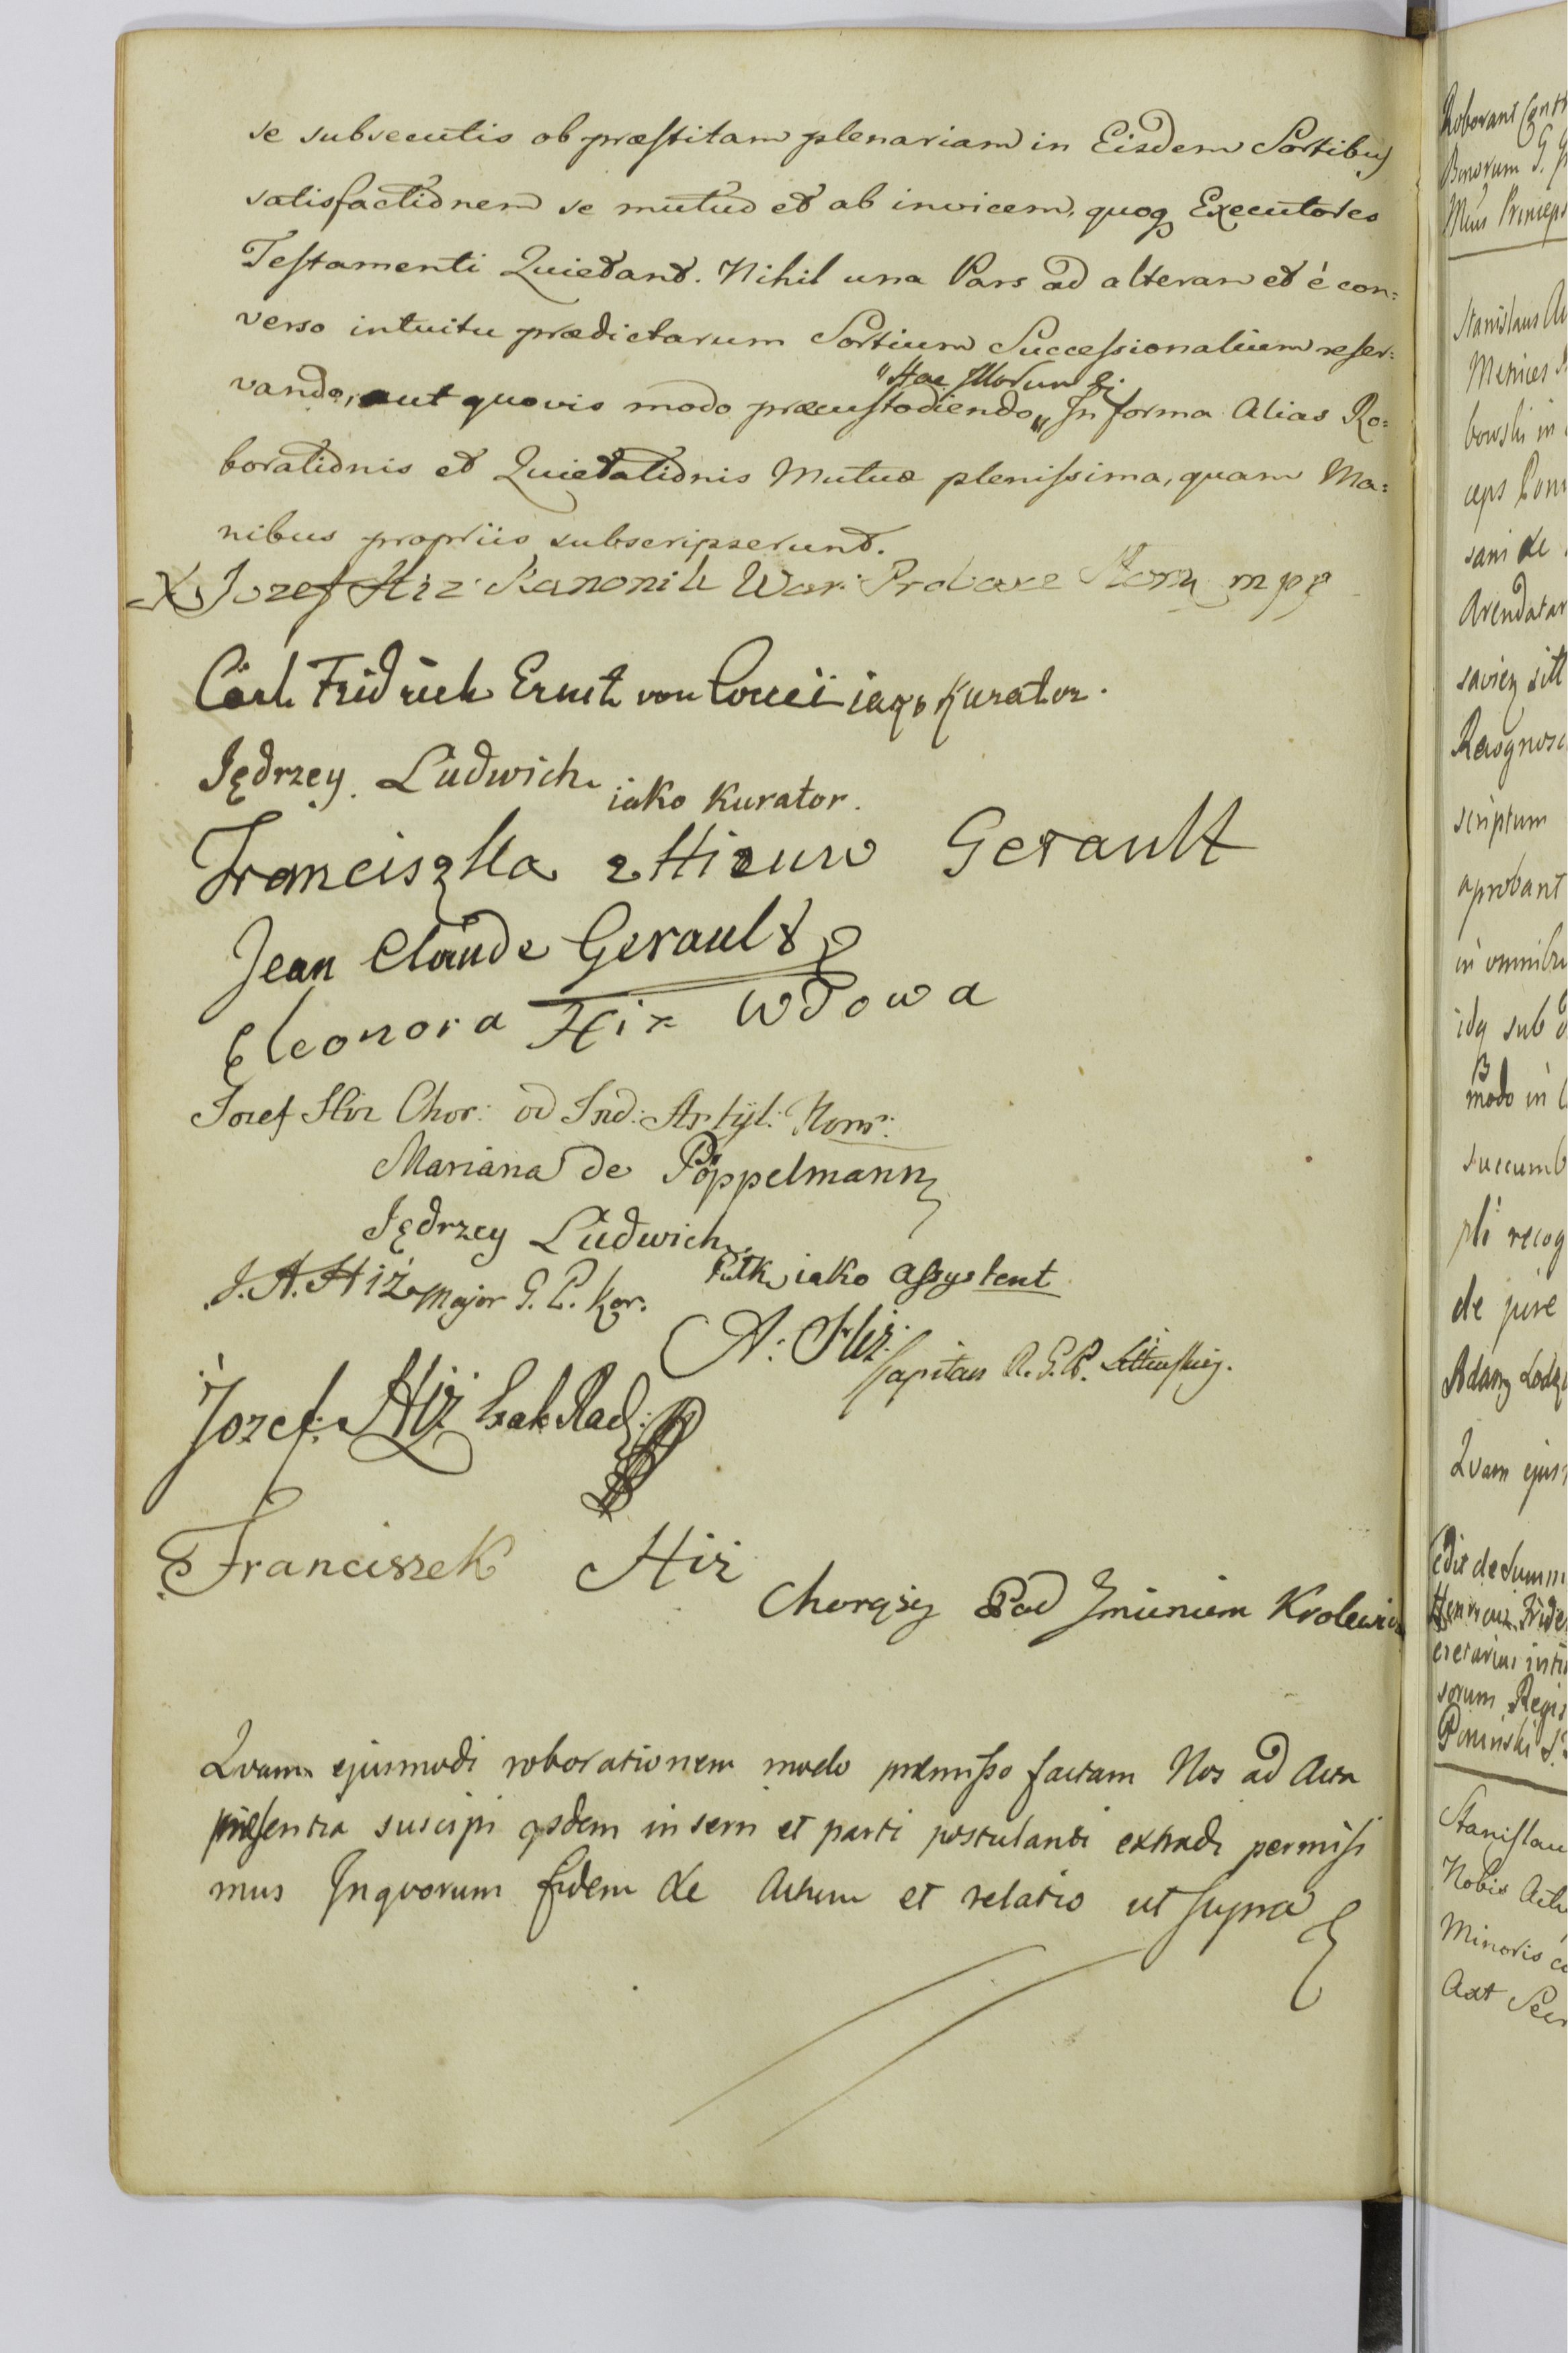 se subsecutis ob præstitam plenariam in Eisdem Sortibus
satisfactionem se mutuo et ab invicem, quoq Executores
Testamenti Quietant. Nihil una Pars ad alteram et é con=
verso intuitu prædictarum Sortium Successionalium reser=
vando, aut quovis modo præcustodiendo „ In forma Alias Ro=
borationis et Quietationis Mutuæ plenissima, quam Ma=
nibus propriis subscripserunt.
X Jozef Hiz Kanonik War: mpp
Carl Fridrich Ernst von Coccei iako Kurator.
Jędrzey Ludwich iako Kurator.
Franciszka z Hizuw Gerault
Jean Claude Gerault
Eleonora Hiz wdowa
Jozef Hiz Chor: od Ind: Artyl: Koro:
Mariana de Pöppelmann
Jędrzey Ludwich
Pułk iako assystent
J. A. Hiż Major G. P. Kor.
A: Hiż: Capitan R. G. P.
Jozef Hiż
Franciszek Hiż
Chorąży Pod Imieniem Krolewi
Qvam ejusmodi roborationem modo præmisso factam Nos ad Acta
præsentia suscipi qsdem inseri et parti postulanti extradi permisi
mus Inqvorum fidem &c Actum et relatio ut supra
Roborant
Binorum
Meus Princeps
Stanislaus
bowski in
ceps
sani de
Arendatar
scriptum
aprobant
in omnibu
idq sub
modo in
succumb
recog
de jure
Adam
Qvam ejus
sorum Regis
Poninski
Stanislau
Nobis
Minoris